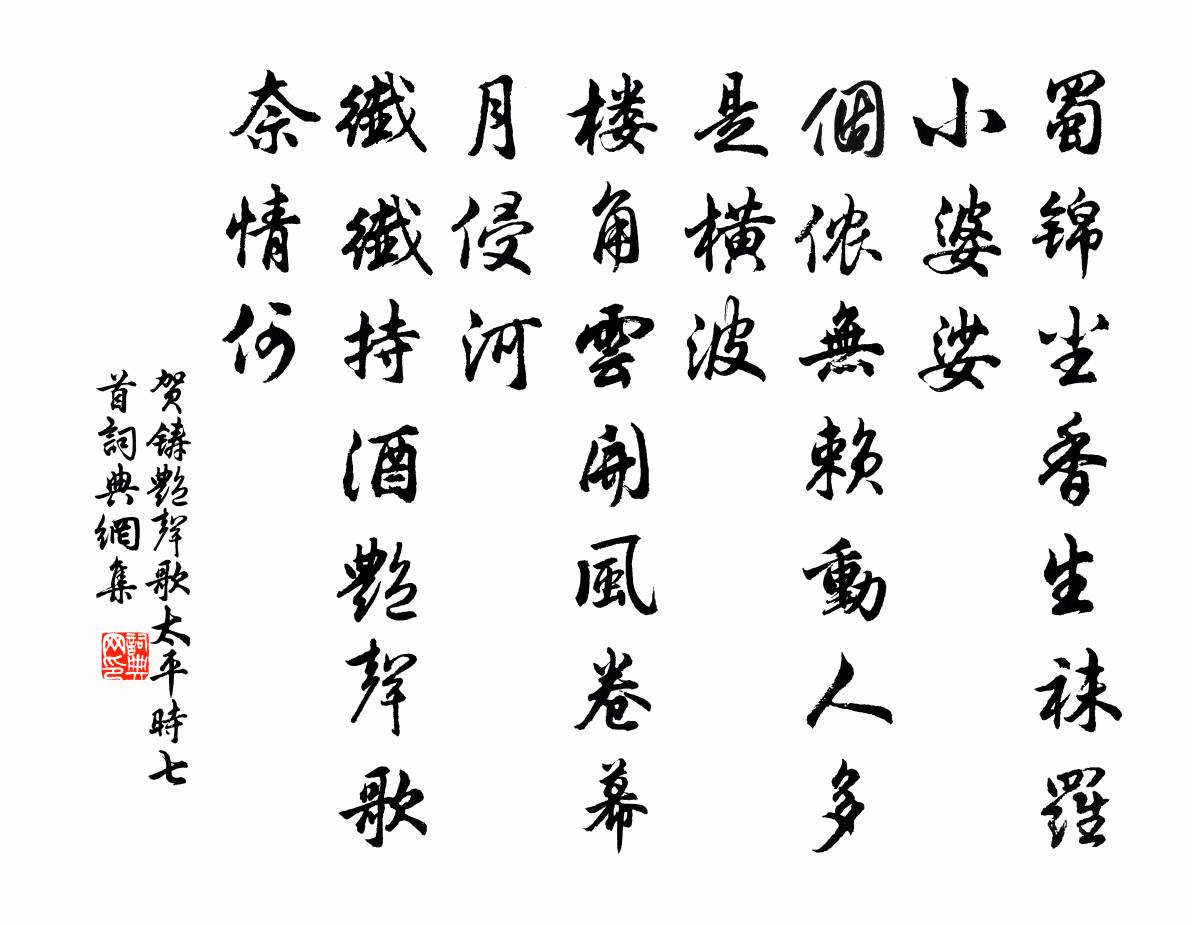 蜀锦尘香生袜羅
小婆娑
個侬無赖動人多
是橫波
楼角雲開風卷幕
月侵河
纖纖持酒艷聲歌
奈情何
贺鑄艷聲歌太平時七
首詞典網集
詞典
网印